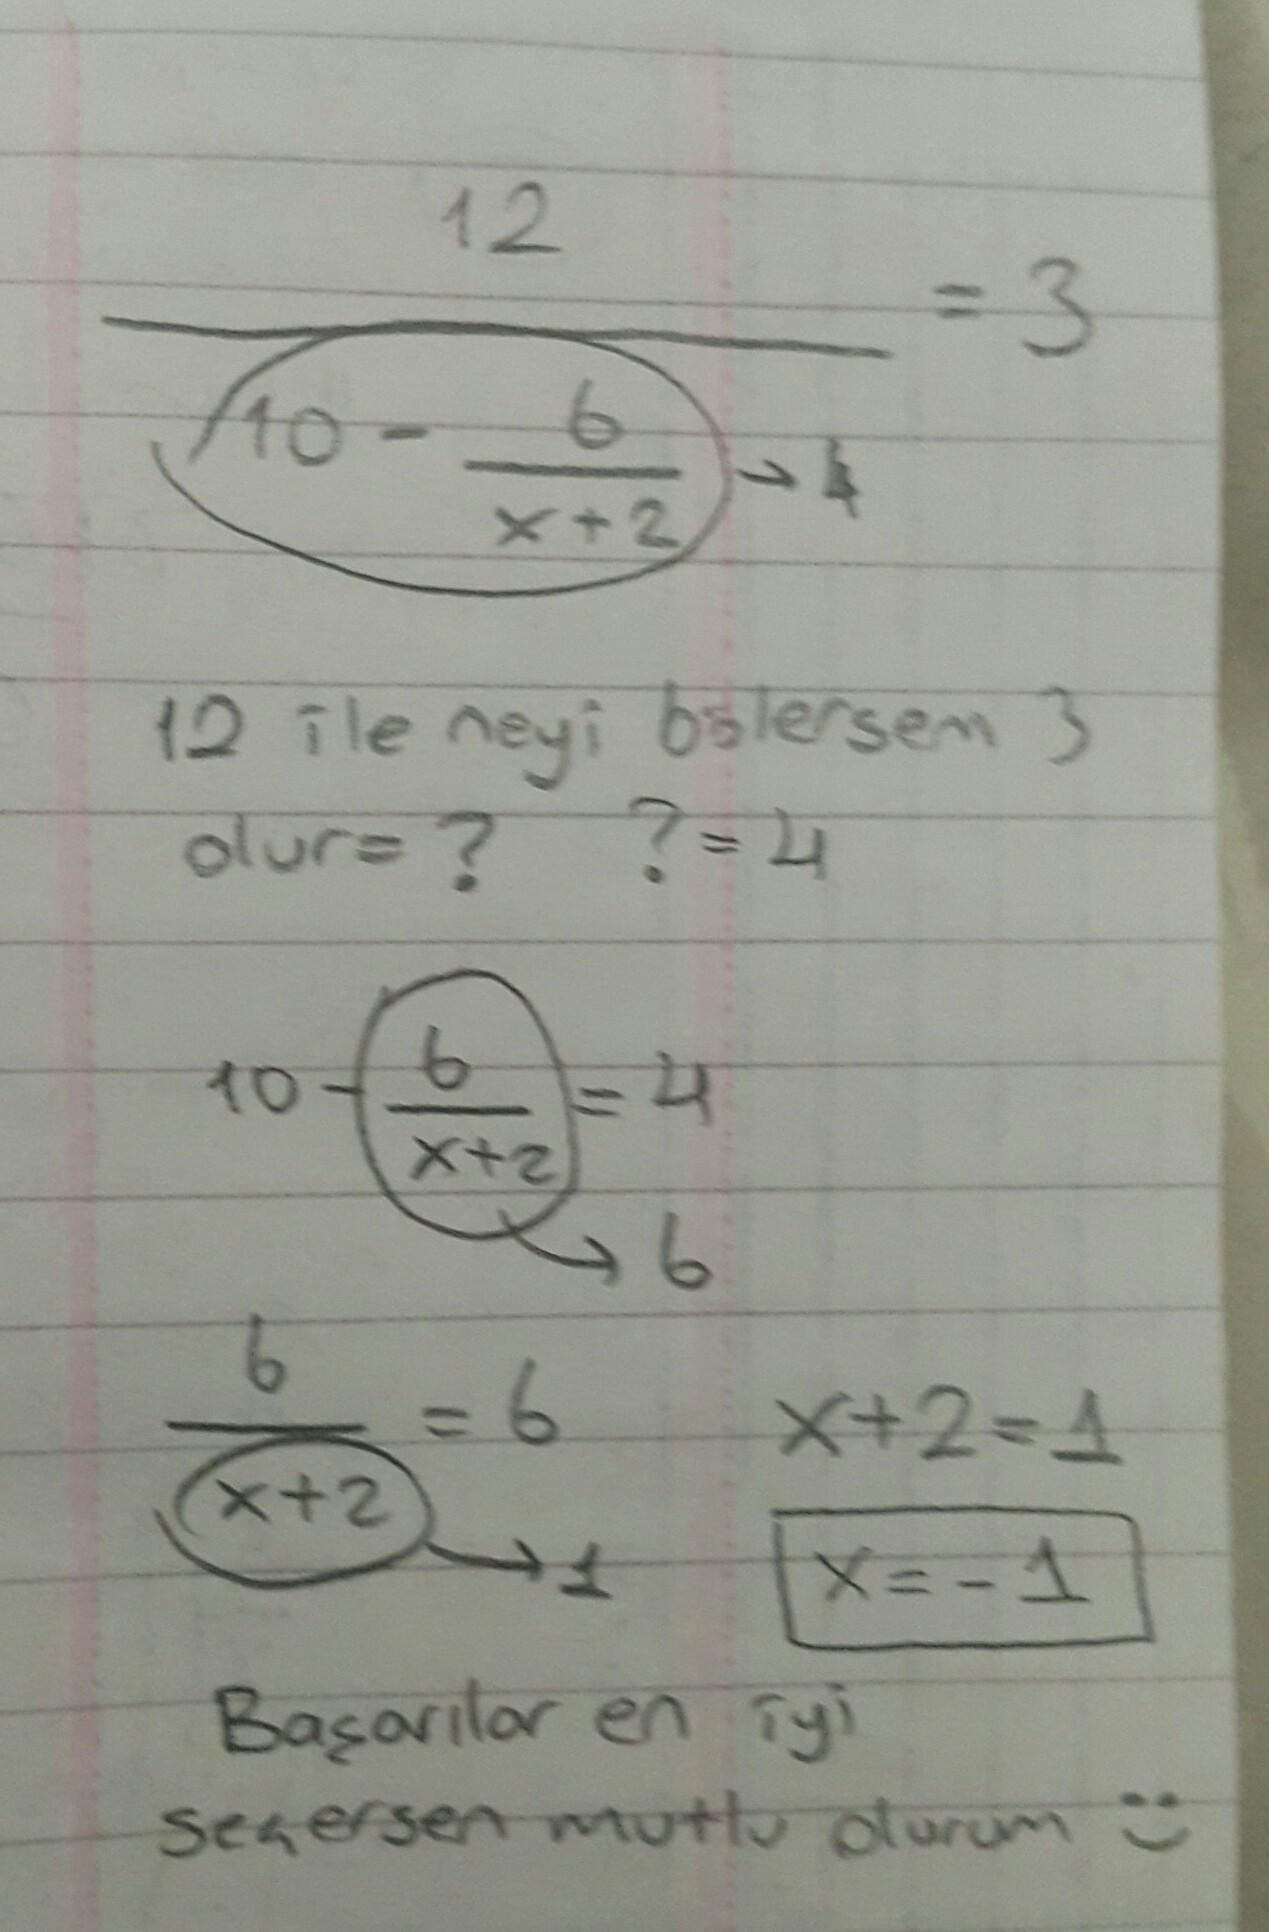 12
= 3
10 - 6/(x+2) → 4
12 ile neyi bölersem 3
olur= ? ?= 4
10 - 6/(x+2) = 4
→ 6
6/(x+2) = 6 x+2=1
→ 1 x=-1
Başarılar en iyi
seçersen mutlu olurum :)